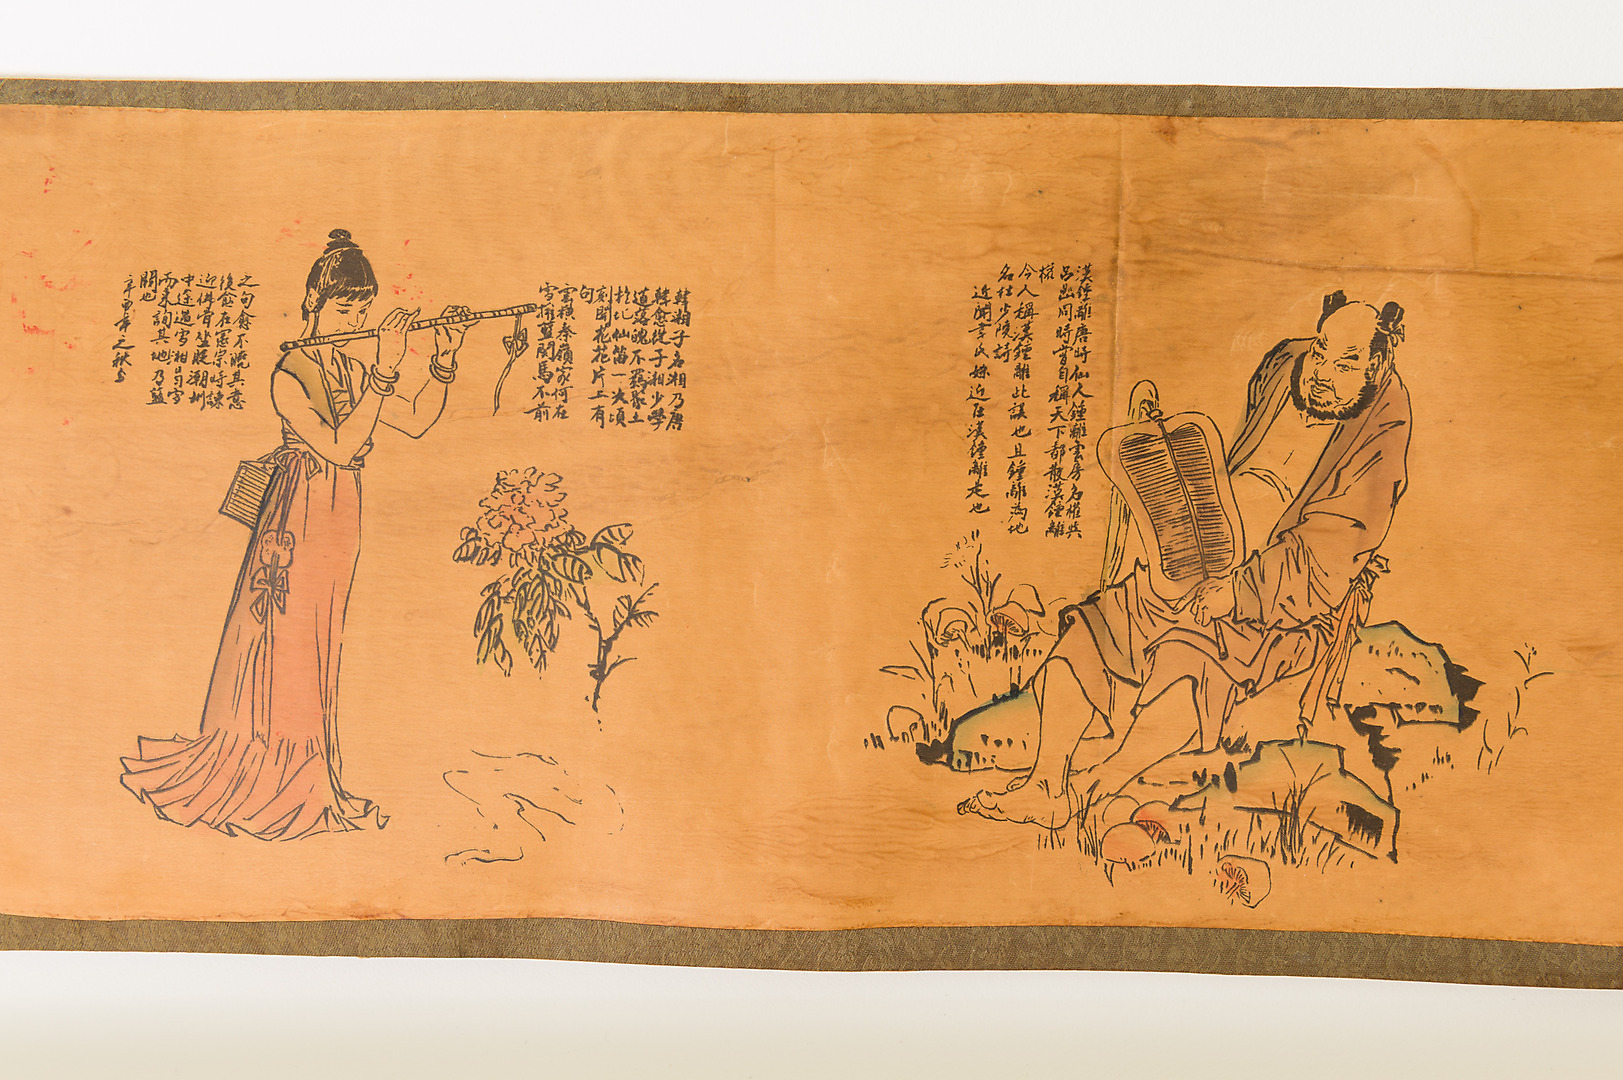 漢鍾離唐時仙人鍾離雲房名權與
呂岩同時嘗自稱天下都散漢鍾離
權
今人稱漢鍾離此誤也且鍾離為地
名杜少陵詩
近聞韋氏妹近在漢鍾離是也
韓湘子名湘乃唐
韓愈從子湘少學
道落魄不羈聚土
於仙笛一次頃
刻開花花片上有
句
雲橫秦嶺家何在
雪擁藍關馬不前
之句愈不曉其意
後愈在憲宗時諫
迎佛骨坐貶潮州
中途遇雪湘曰雪
而來詢其地乃藍
關也
辛年之秋